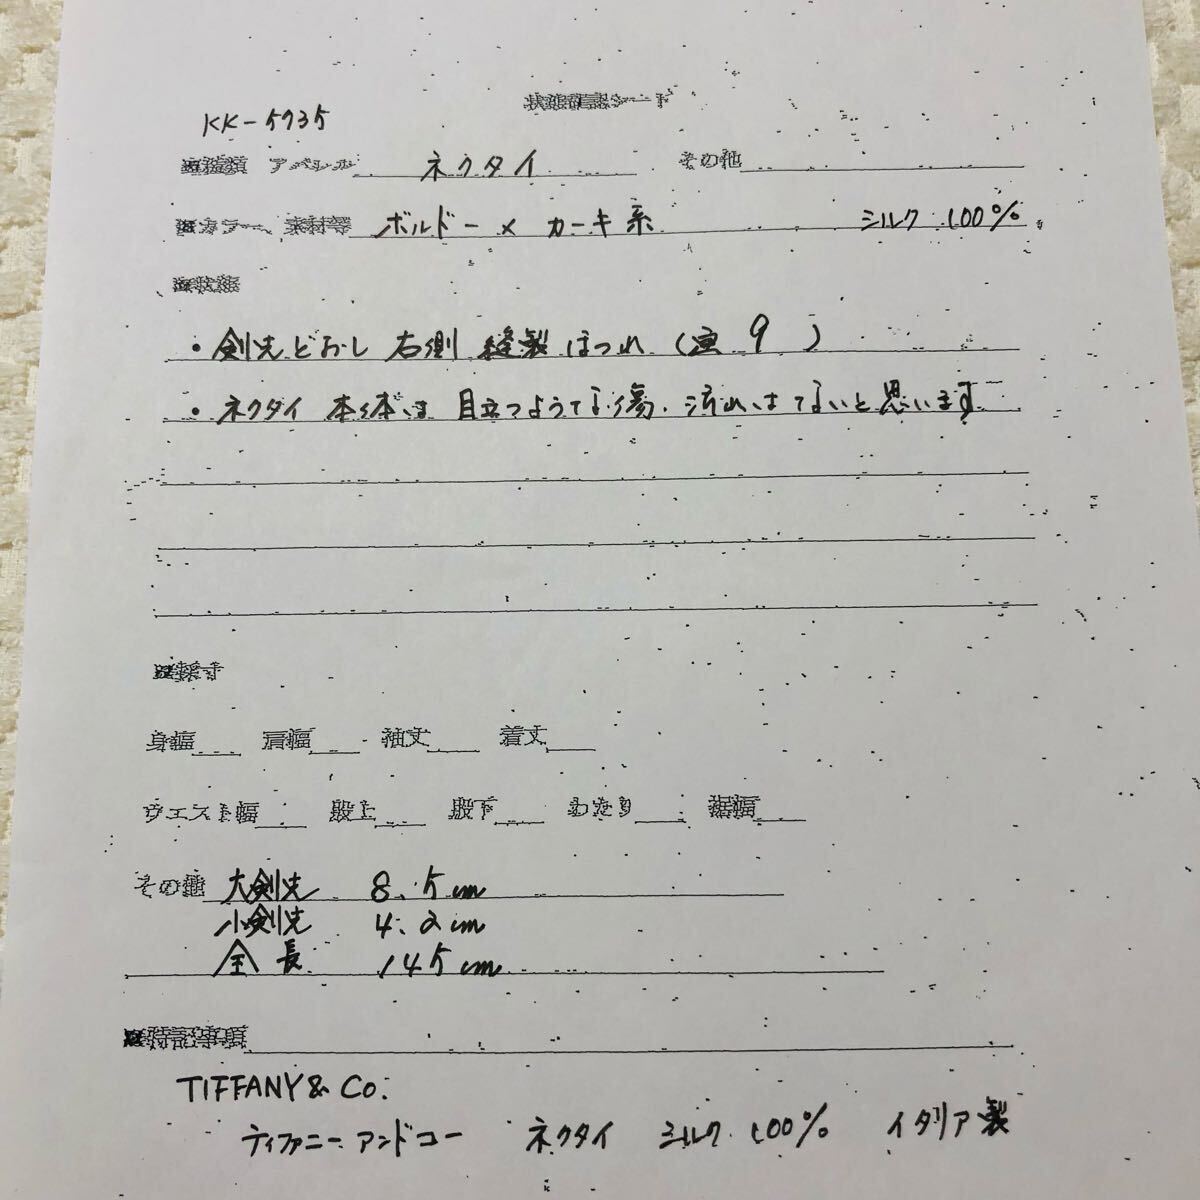 状態確認シート
KK-5735
■種類 アパレル ネクタイ その他
■カラー、素材等 ボルドー × カーキ系 シルク 100%
■状態
・剣先どおし 右側 縫製 ほつれ (画 9 )
・ネクタイ 本体は 目立つような傷、汚れはないと思います
■採寸
身幅 肩幅 袖丈 着丈
ウエスト幅 股上 股下 わたり 裾幅
その他 大剣先 8.5cm
小剣先 4.2cm
全長 145cm
■特記事項
TIFFANY & Co.
ティファニー アンドコー ネクタイ シルク 100% イタリア製